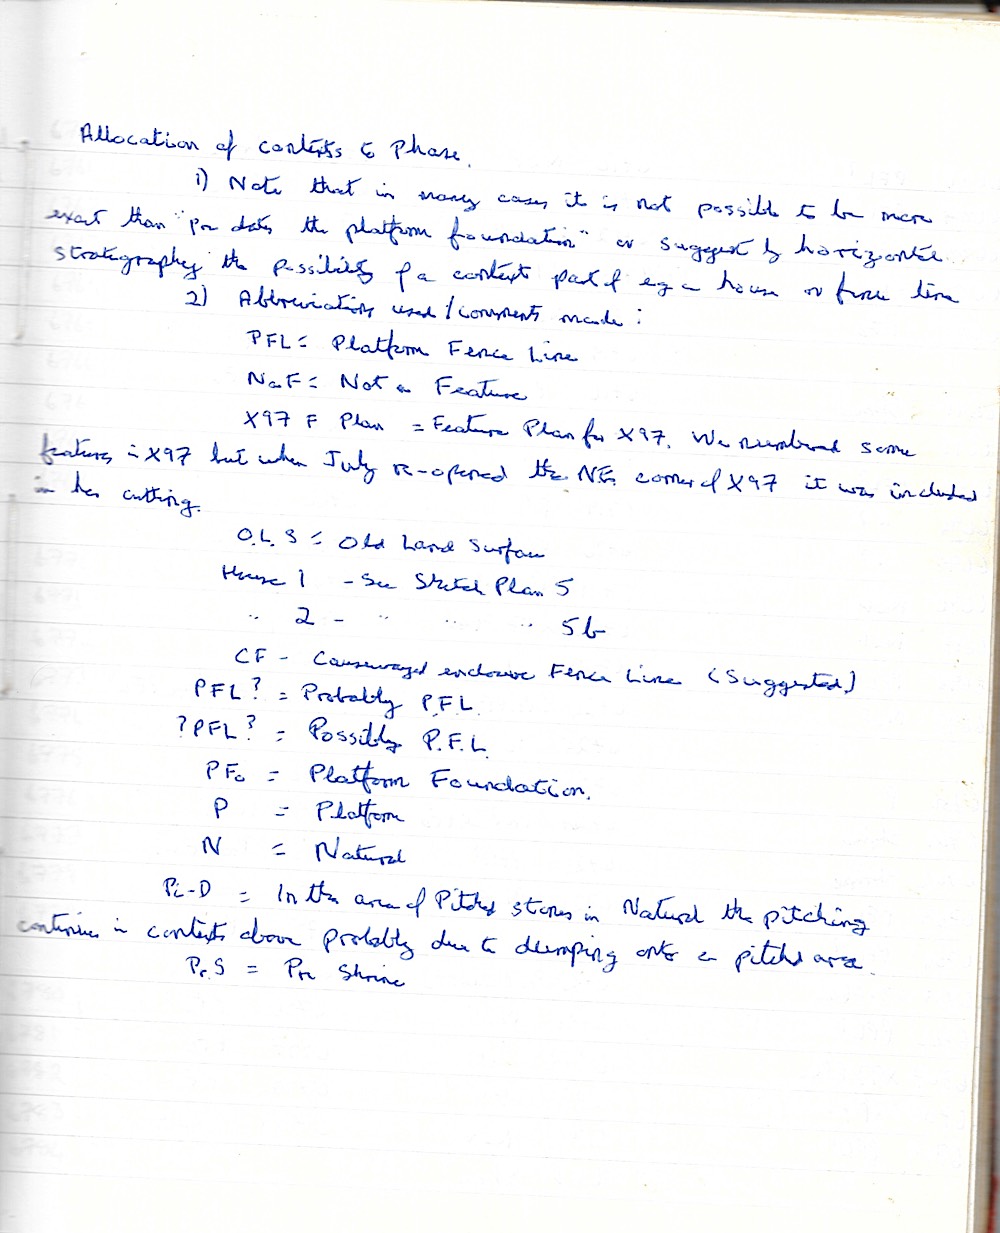 Allocation of contexts to Phase.
1) Note that in many cases it is not possible to be more
exact than "pre dates the platform foundation" or suggest by horizontal
stratography the possibility of a context part of eg a house or fence line
2) Abbreviations used / comments made :
PFL = Platform Fence Line
NaF = Not a Feature
X97 F Plan = Feature Plan for X97. We numbered some
features in X97 but when Judy re-opened the NE. corner of X97 it was included
in her cutting.
O.L.S = Old Land Surface
House 1 - See Sketch Plan 5
" 2 - " " " 5b
CF - Causewayed enclosure Fence Line (Suggested)
PFL? = Probably P.F.L.
?PFL? = Possibly P.F.L.
PFo = Platform Foundation.
P = Platform
N = Natural
Pi-D = In the area of Pitched stones in Natural the pitching
continues in contexts above probably due to dumping onto a pitched area.
Pr.S = Pre Shrine